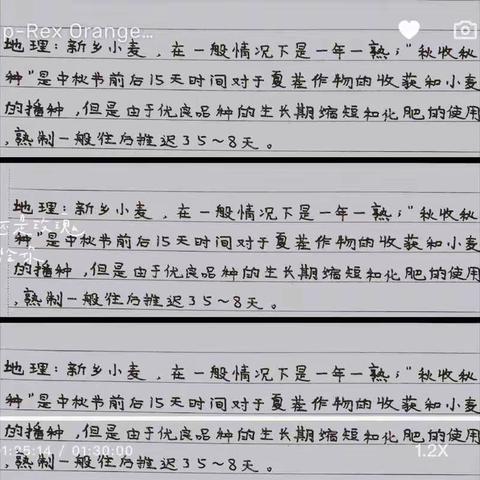 p-Rex Orange...
地理：新乡小麦，在一般情况下是一年一熟；“秋收秋
种”是中秋节前后15天时间对于夏茬作物的收获和小麦
的播种，但是由于优良品种的生长期缩短和化肥的使用
，熟制一般往后推迟35~8天。
地理：新乡小麦，在一般情况下是一年一熟；“秋收秋
种”是中秋节前后15天时间对于夏茬作物的收获和小麦
的播种，但是由于优良品种的生长期缩短和化肥的使用
，熟制一般往后推迟35~8天。
地理：新乡小麦，在一般情况下是一年一熟；“秋收秋
种”是中秋节前后15天时间对于夏茬作物的收获和小麦
的播种，但是由于优良品种的生长期缩短和化肥的使用
1:25:14 / 01:30:00 1.2X
，熟制一般往后推迟35~8天。